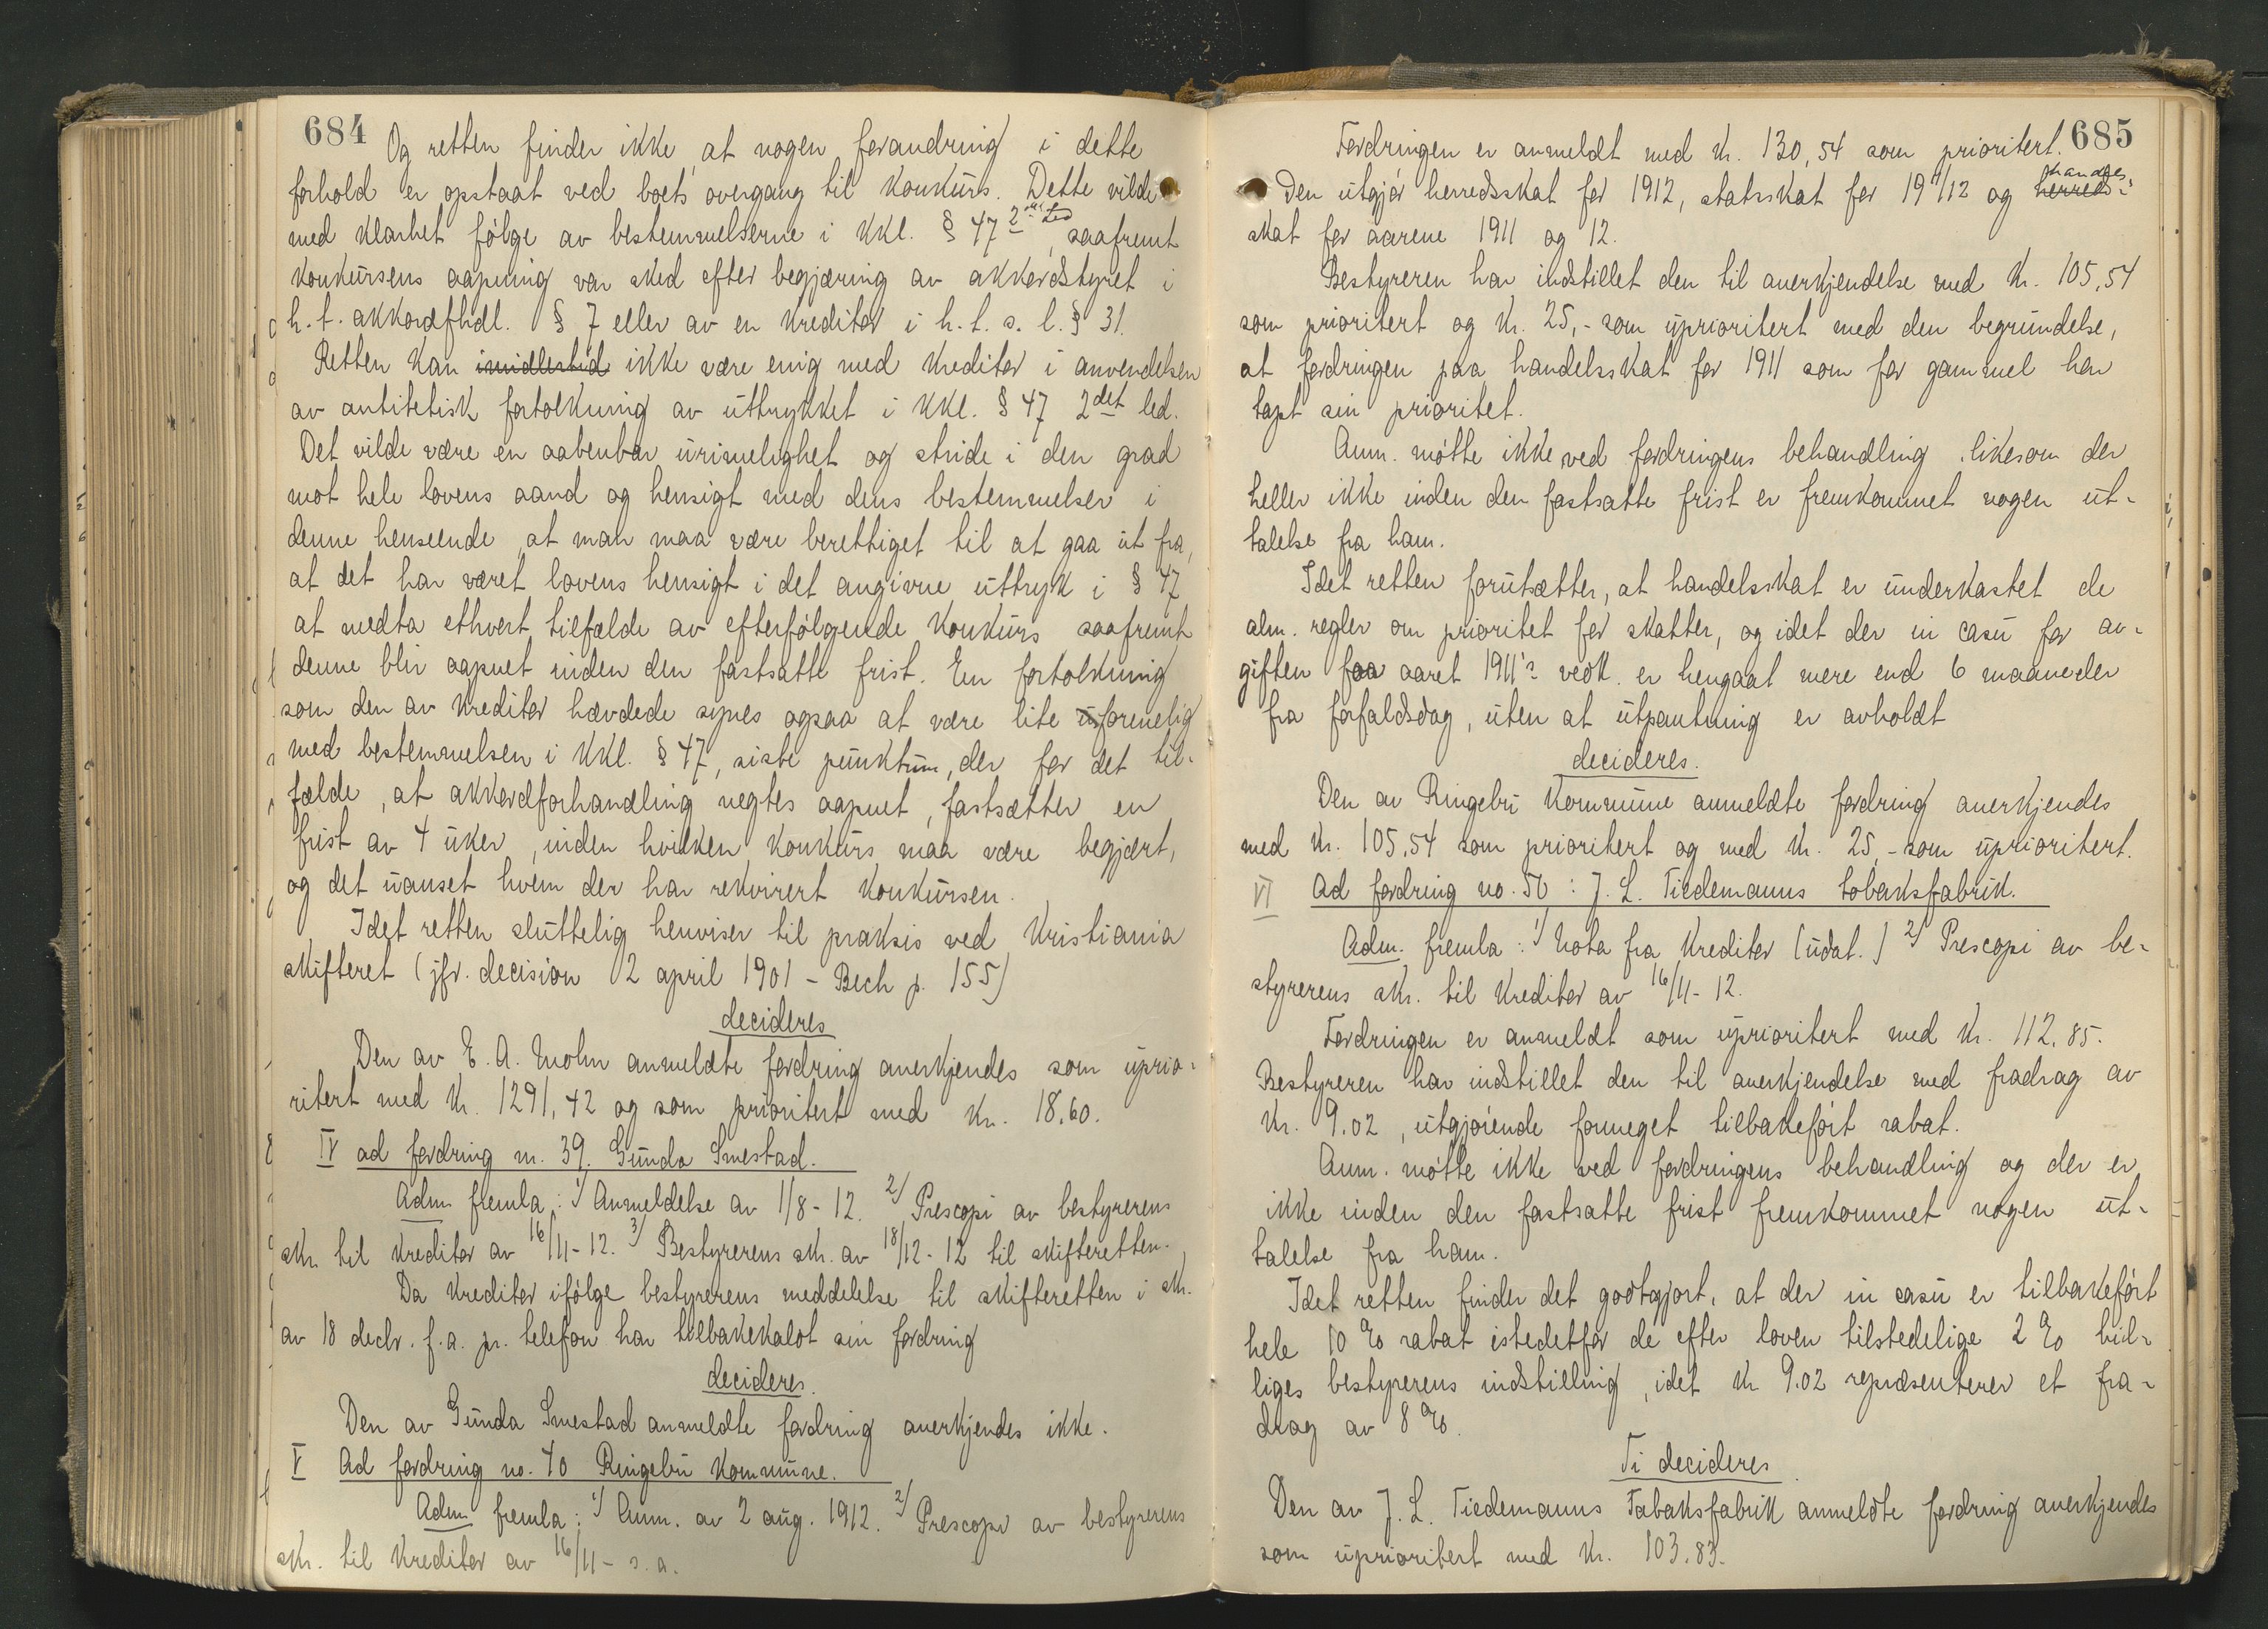 684
Og retten finder ikke at nogen forandring i dette
forhold er opstaat ved boets overgang til konkurs. Dette vilde
med klarhet følge av bestemmelserne i kkl. § 47 2det led, saafremt
konkursens aapning var sked efter begjæring av akkordstyret i
h. t. akkordfhdl. § 7 eller av en kreditor i h. t. s. l. § 31.
Retten kan imidlertid ikke være enig med kreditor i anvendelsen
av antitetisk fortolkning av uttrykket i kkl. § 47 2det led.
Det vilde være en aabenbar urimelighet og stride i den grad
mot hele lovens aand og hensigt med dens bestemmelser i
denne henseende at man maa være berettiget til at gaa ut fra,
at det har været lovens hensigt i det angivne uttryk i § 47
at medta ethvert tilfælde av efterfølgende konkurs saafremt
denne blir aapnet inden den fastsatte frist. En fortolkning
som den av kreditor hævdede synes ogsaa at være lite forenelig
med bestemmelsen i kkl. § 47, siste punktum, der for det til-
fælde, at akkordforhandling negtes aapnet, fastsætter en
frist av 4 uker, inden hvilken konkurs maa være begjært,
og det uanset hvem der har rekvirert konkursen.
Idet retten sluttelig henviser til praksis ved Kristiania
skifteret (jfr. decision 2 april 1901 - Bech p. 155)
decideres
Den av E. A. Mohn anmeldte fordring anerkjendes som uprio-
ritert med kr. 1291,42 og som prioritert med kr. 18.60.
IV ad fordring nr. 39. Gunda Smestad.
Adm. fremla: 1) Anmeldelse av 1/8-12. 2) Prescopi av bestyrerens
skr. til kreditor av 16/11-12. 3) Bestyrerens skr. av 18/12-12 til skifteretten.
Da kreditor ifølge bestyrerens meddelelse til skifteretten i skr.
av 18 decbr. f. a. pr. telefon har tilbakekaldt sin fordring
decideres.
Den av Gunda Smestad anmeldte fordring anerkjendes ikke.
V Ad fordring no. 40 Ringebu kommune.
Adm. fremla: 1) Anm. av 2 aug. 1912. 2) Prescopi av bestyrerens
skr. til kreditor av 16/11 - s. a.
685
Fordringen er anmeldt med kr. 130,54 som prioritert.
handels
Den utgjør herredsskat for 1912, statsskat for 1911/12 og herreds-
skat for aarene 1911 og 12.
Bestyreren har indstillet den til anerkjendelse med kr. 105,54
som prioritert og kr. 25,- som uprioritert med den begrundelse,
at fordringen paa handelsskat for 1911 som for gammel har
tapt sin prioritet.
Anm. møtte ikke ved fordringens behandling likesom der
heller ikke inden den fastsatte frist er fremkommet nogen ut-
talelse fra ham.
Idet retten forutsætter, at handelsskat er underkastet de
alm. regler om prioritet for skatter, og idet der in casu for av-
giften for aaret 1911's vedk. er hengaat mere end 6 maaneder
fra forfaldsdag, uten at utpantning er avholdt
decideres.
Den av Ringebu kommune anmeldte fordring anerkjendes
med kr. 105.54 som prioritert og med kr. 25,- som uprioritert.
VI Ad fordring no. 50: J. L. Tiedemanns tobaksfabrik.
Adm. fremla: 1) Nota fra kreditor (udat.) 2) Prescopi av be-
styrerens skr. til kreditor av 16/11-12.
Fordringen er anmeldt som uprioritert med kr. 112.85.
Bestyreren har indstillet den til anerkjendelse med fradrag av
kr. 9.02, utgjørende formeget tilbakeført rabat.
Anm. møtte ikke ved fordringens behandling og der er
ikke inden den fastsatte frist fremkommet nogen ut-
talelse fra ham.
Idet retten finder det godtgjort, at der in casu er tilbakeført
hele 10 % rabat istedetfor de efter loven tilstedelige 2 % bil-
liges bestyrerens indstilling, idet kr 9.02 repræsenterer et fra-
drag av 8 %.
Ti decideres
Den av J. L. Tiedemanns Tobaksfabrik anmeldte fordring anerkjendes
som uprioritert med kr. 103.83.